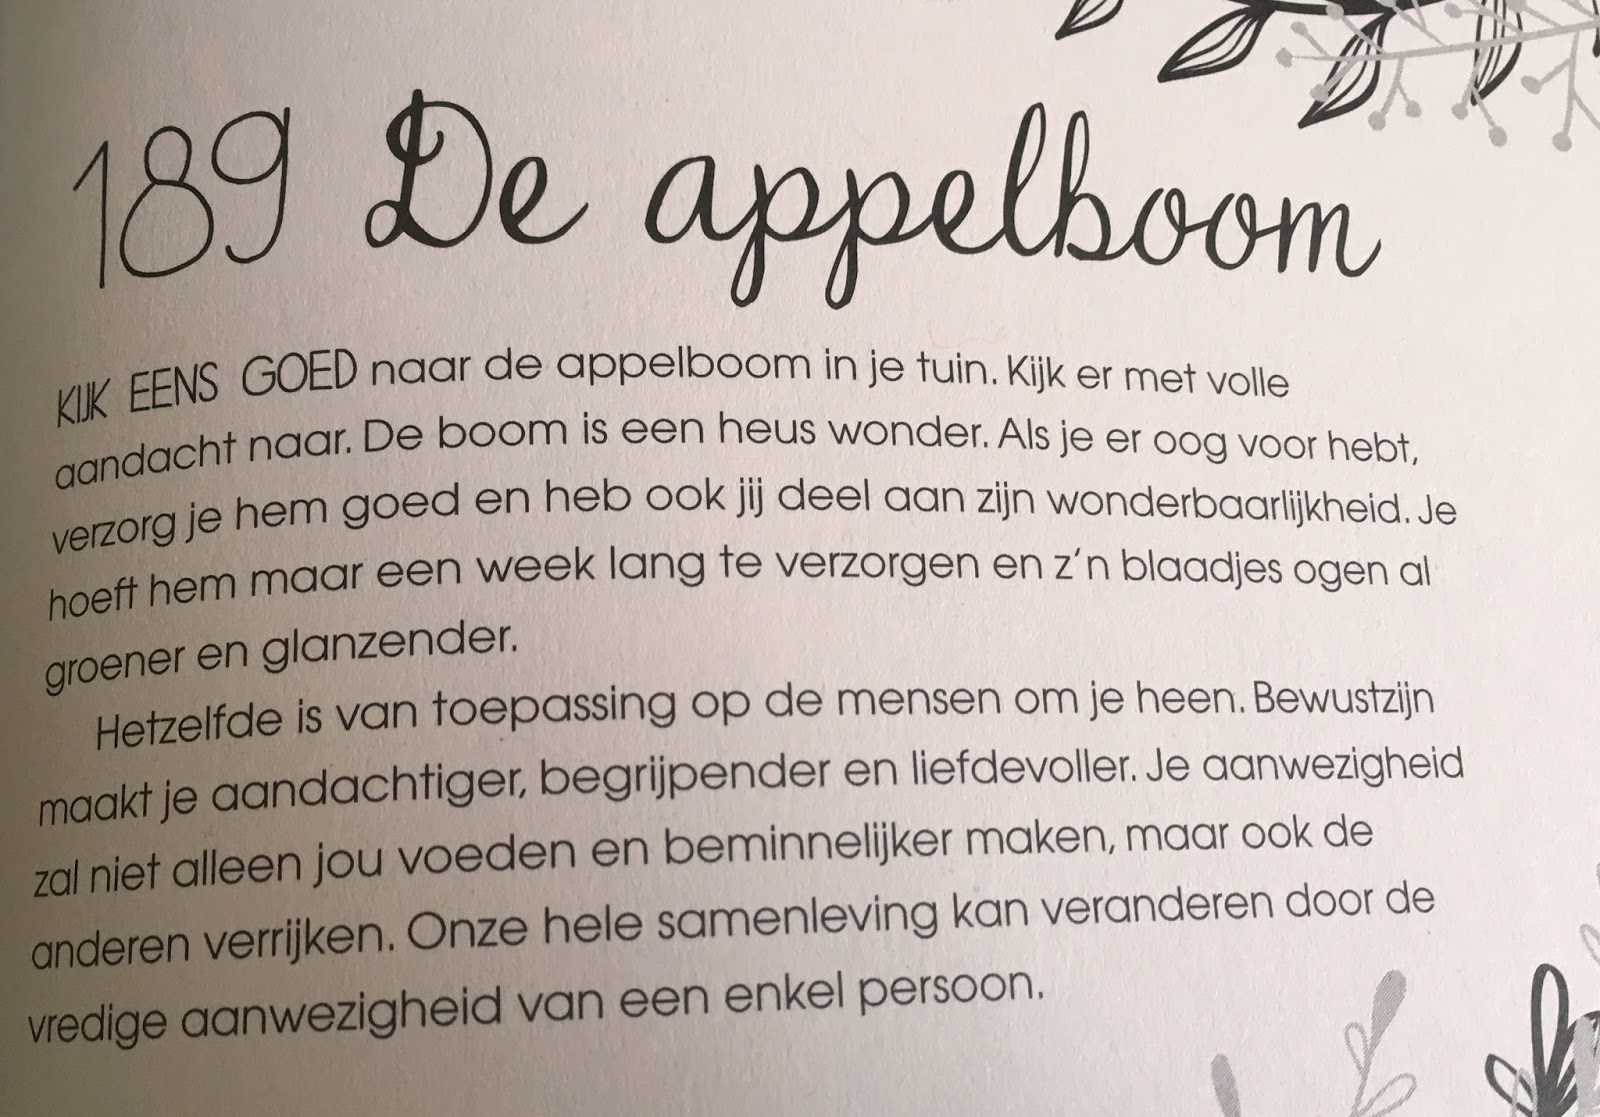 189 De appelboom
KIJK EENS GOED naar de appelboom in je tuin. Kijk er met volle
aandacht naar. De boom is een heus wonder. Als je er oog voor hebt,
verzorg je hem goed en heb ook jij deel aan zijn wonderbaarlijkheid. Je
hoeft hem maar een week lang te verzorgen en z'n blaadjes ogen al
groener en glanzender.
Hetzelfde is van toepassing op de mensen om je heen. Bewustzijn
maakt je aandachtiger, begrijpender en liefdevoller. Je aanwezigheid
zal niet alleen jou voeden en beminnelijker maken, maar ook de
anderen verrijken. Onze hele samenleving kan veranderen door de
vredige aanwezigheid van een enkel persoon.